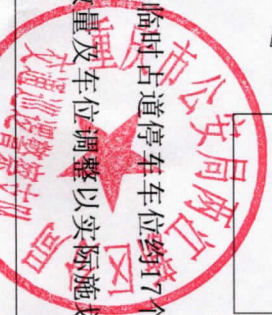 临时占道停车车位约17个
量及车位调整以实际施划
重庆市公安局两江新区分局
交通巡逻警察支队